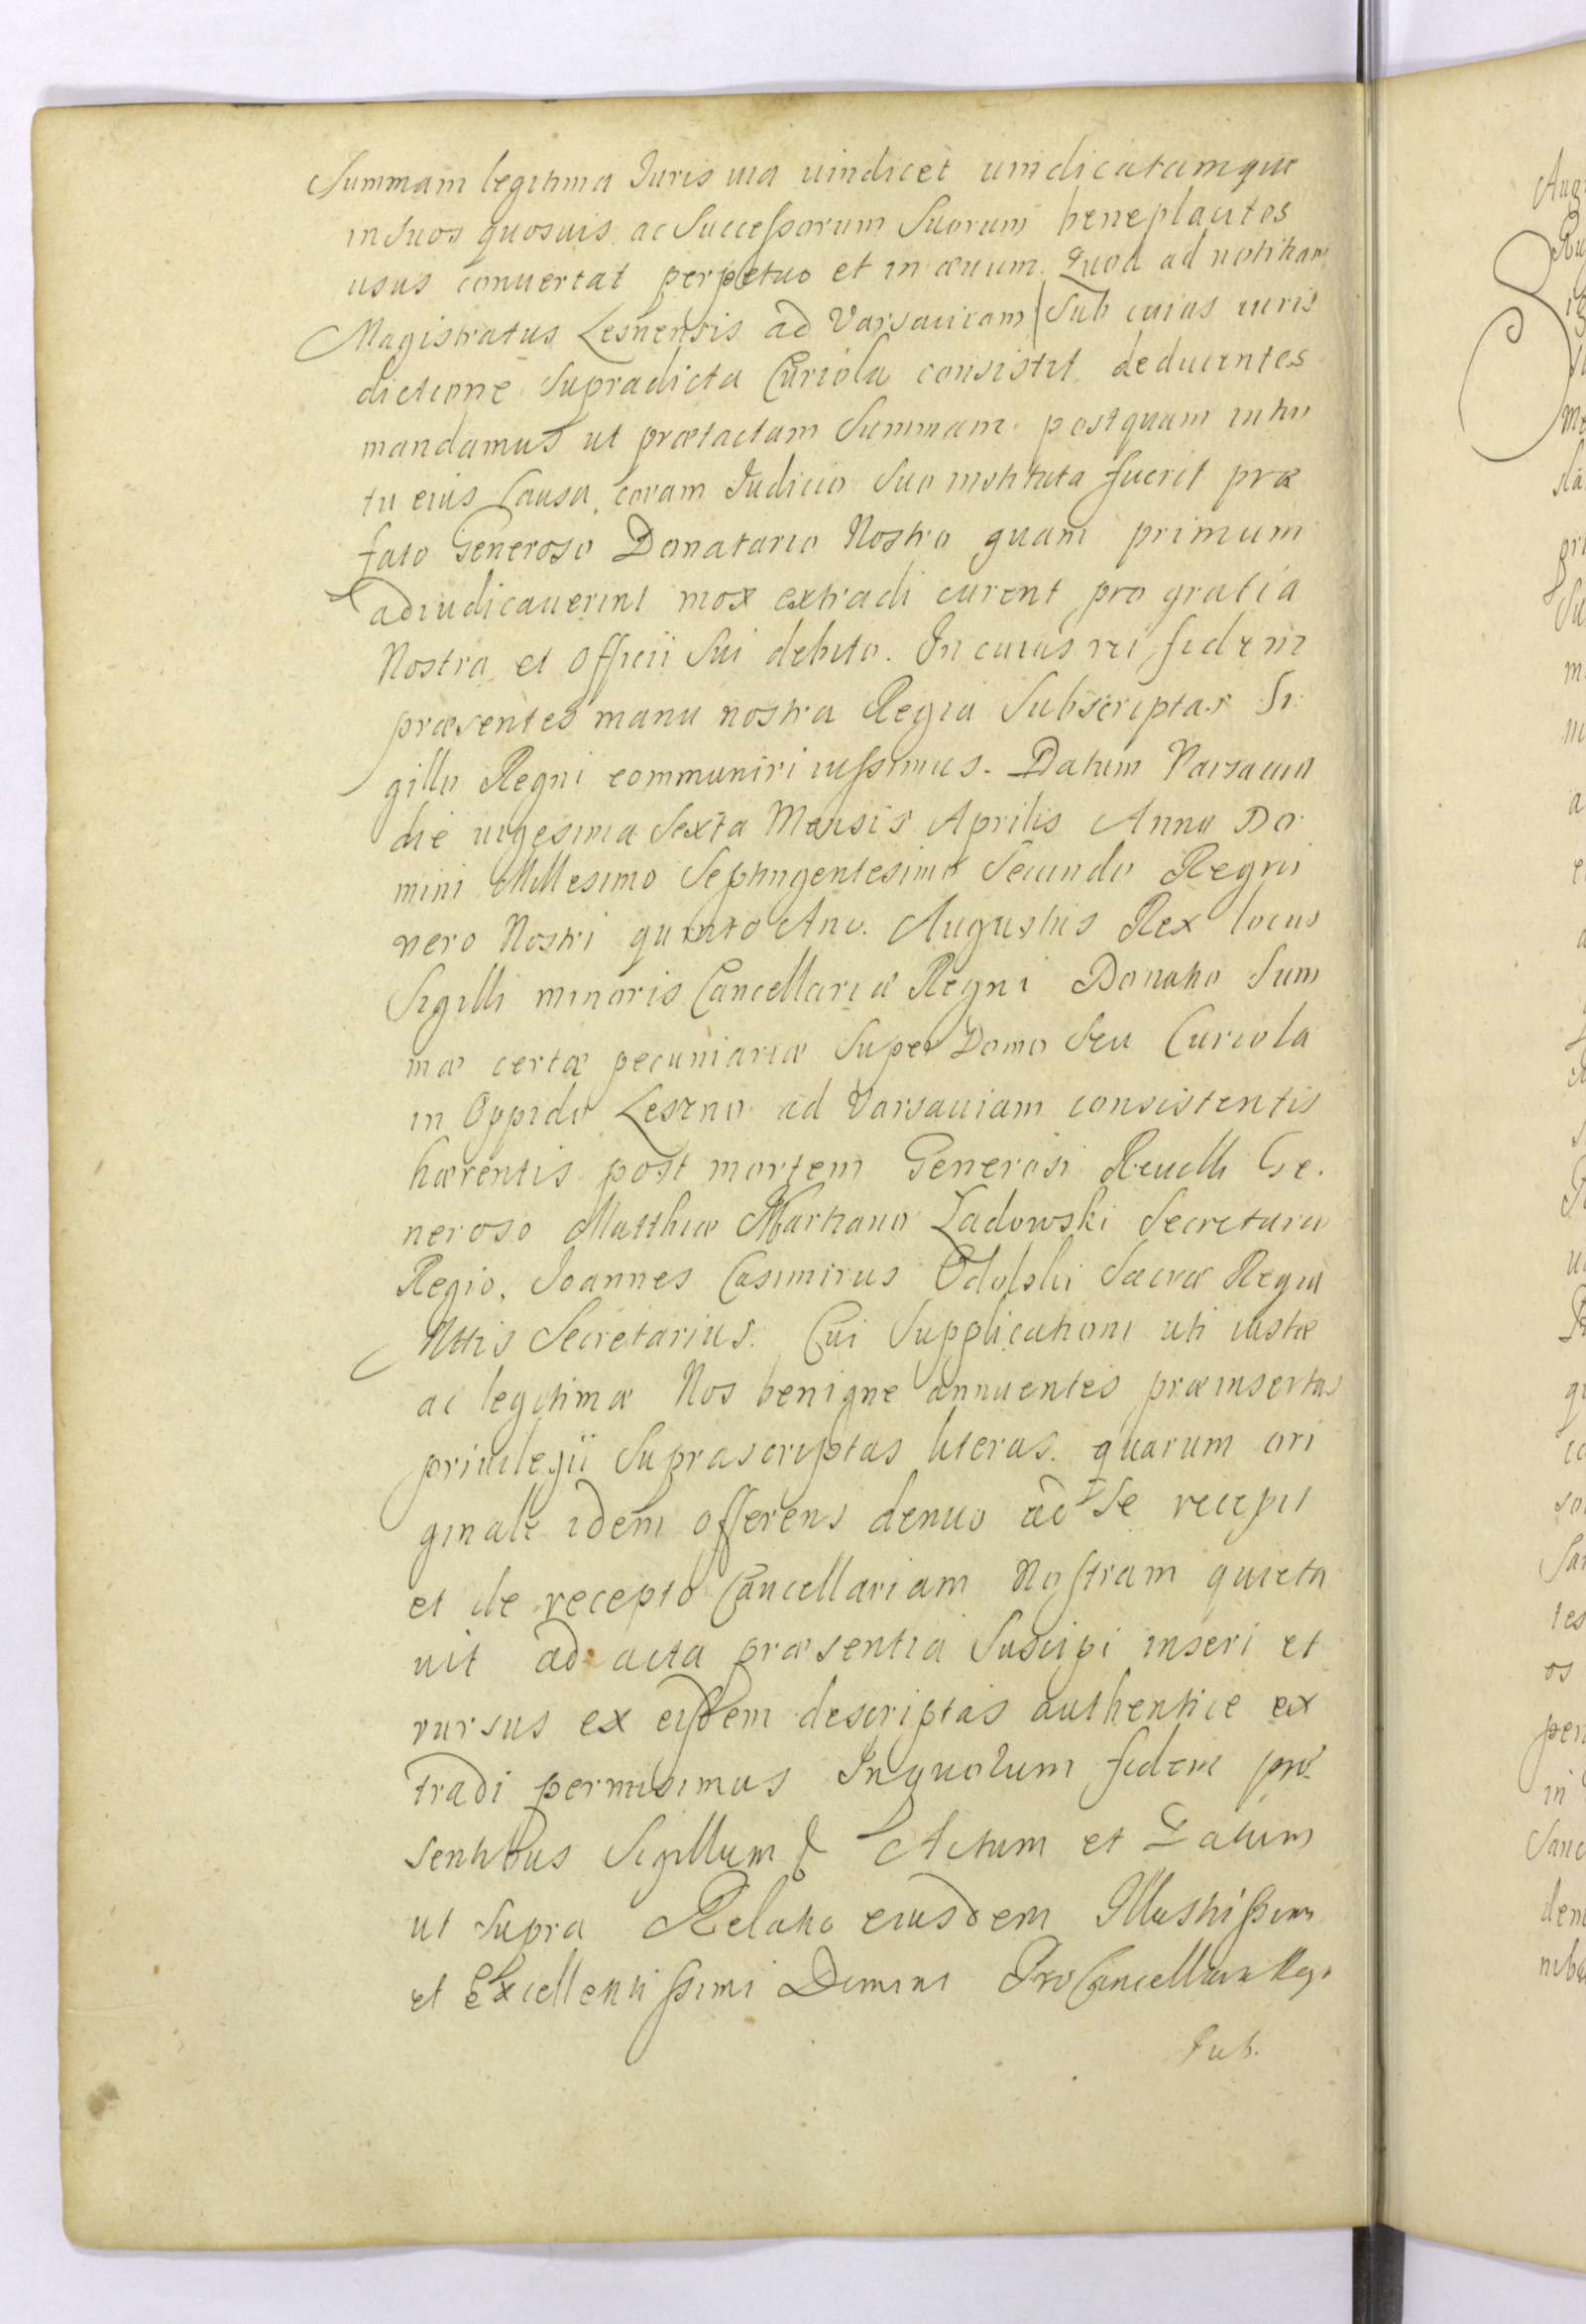 Summam legitima Iuris uia uindicet uindicatamque
in suos quosuis ac Successorum Suorum beneplacitos
usus conuertat perpetuo et in æuum. Quod ad notitiam
Magistratus Lesnensis ad Varsauiam Sub cuius iuris
dictione Supradicta Curiola consistit deducentes
mandamus ut prætactam Summam postquam intui
tu eius Causa coram Iudicio Suo instituta fuerit præ
fato Generoso Donatario Nostro quam primum
adiudicauerint mox extradi curent pro gratia
Nostra et Officii Sui debito. In cuius rei fidem
præsentes manu nostra Regia Subscriptas Si
gillo Regni communiri iussimus. Datum Varsauiæ
die uigesima Sexta Mensis Aprilis Anno Do
mini Millesimo Septingentesimo Secundo Regni
uero Nostri quinto Ano. Augustus Rex locus
Sigilli minoris Cancellariæ Regni Donatio Sum
mæ certæ pecuniariæ Super Domo Seu Curiola
in Oppido Leszno ad Varsauiam consistentis
hærentis post mortem Generosi Reuelli Ge.
neroso Matthiæ Martiano Ladowski Secretario
Regio. Joannes Casimirus Odolski Sacræ Regiæ
Mttis Secretarius. Cui Supplicationi uti iustæ
ac legitimæ Nos benigne annuentes præinsertas
priuilegii Suprascriptas literas. quarum ori
ginale idem offerens denuo ad Se recepit
et de recepto Cancellariam Nostram quieta
uit ad acta præsentia Suscipi inseri et
rursus ex eisdem descriptas authentice ex
tradi permisimus In quorum fidem præ
sentibus Sigillum & Actum et Datum
ut supra Relatio eiusdem Illustrissimi
et Excellentissimi Domini ProCancellarii Reg.
Sub.